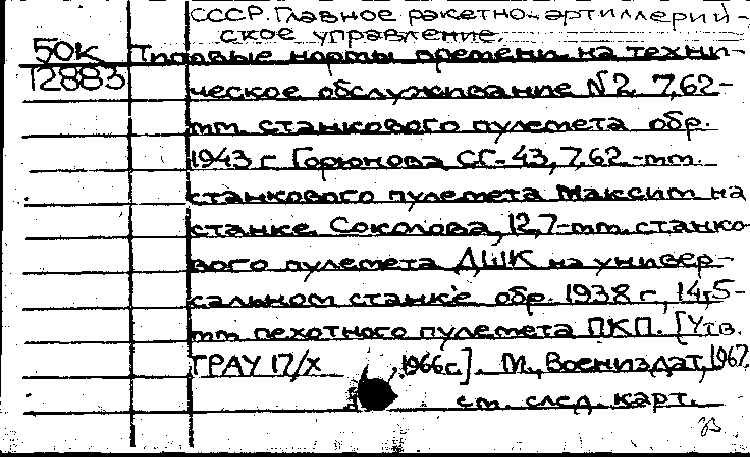 СССР. Главное ракетно-артиллерий-
ское управление.
50к Типовые нормы времени на техни-
12883 ческое обслуживание №2 7,62-
мм. станкового пулемета обр.
1943 г Горюнова СГ-43, 7,62-мм.
станкового пулемета Максим на
станке Соколова, 12,7-мм. станко-
вого пулемета ДШК на универ-
сальном станке обр. 1938 г, 14,5-
мм пехотного пулемета ПКП. [Утв.
ГРАУ 17/X , 1966г.]. М., Воениздат, 1967.
см. след. карт.